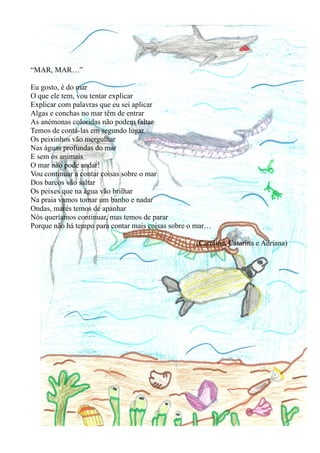 “MAR, MAR…”
Eu gosto, é do mar
O que ele tem, vou tentar explicar
Explicar com palavras que eu sei aplicar
Algas e conchas no mar têm de entrar
As anémonas coloridas não podem faltar
Temos de contá-las em segundo lugar
Os peixinhos vão mergulhar
Nas águas profundas do mar
E sem os animais
O mar não pode andar!
Vou continuar a contar coisas sobre o mar
Dos barcos vão saltar
Os peixes que na água vão brilhar
Na praia vamos tomar um banho e nadar
Ondas, marés temos de apanhar
Nós queríamos continuar, mas temos de parar
Porque não há tempo para contar mais coisas sobre o mar…
Catarina e Adriana)